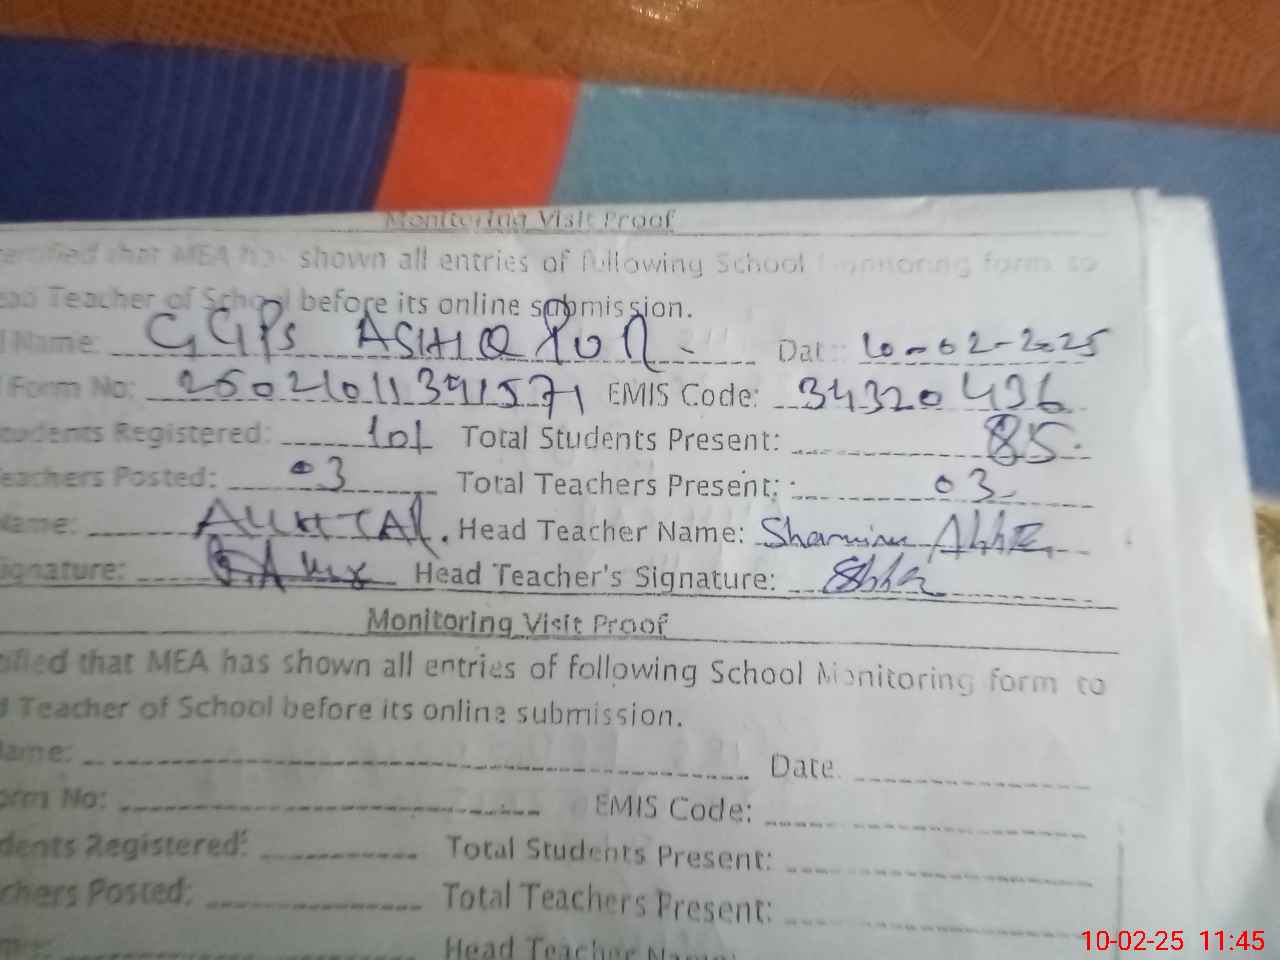 Monitoring Visit Proof
ertified that MEA has shown all entries of following School Monitoring form to
ead Teacher of School before its online submission.
Name: GGPS ASHIQ PUR Date: 10-02-2025
Form No: EMIS Code: 34320436
tudents Registered: 101 Total Students Present: 85
eachers Posted: 03 Total Teachers Present: 03
Name: Head Teacher Name:
ignature: Head Teacher's Signature:
Monitoring Visit Proof
ified that MEA has shown all entries of following School Monitoring form to
d Teacher of School before its online submission.
ame: Date:
orm No: EMIS Code:
dents Registered: Total Students Present:
chers Posted: Total Teachers Present:
Head Teacher Name:
10-02-25 11:45